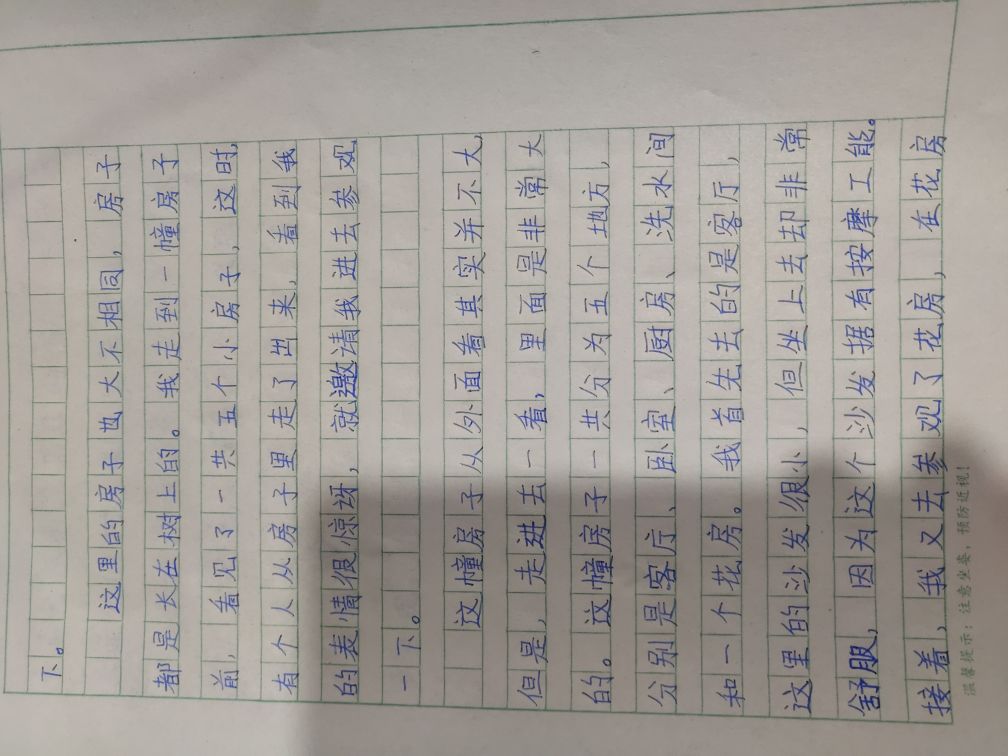 下。
这里的房子也大不相同，房子
都是长在树上的。我走到一幢房子
前，看见了一共五个小房子，这时，
有个人从房子里走了出来，看到我
的表情很惊讶，就邀请我进去参观
一下。
这幢房子从外面看其实并不大，
但是，走进去一看，里面是非常大
的。这幢房子一共分为五个地方，
分别是客厅、卧室、厨房、洗水间
和一个花房。我首先去的是客厅，
这里的沙发很小，但坐上去却非常
舒服，因为这个沙发据有按摩工能。
接着，我又去参观了花房，在花房
温馨提示：注意坐姿，预防近视！